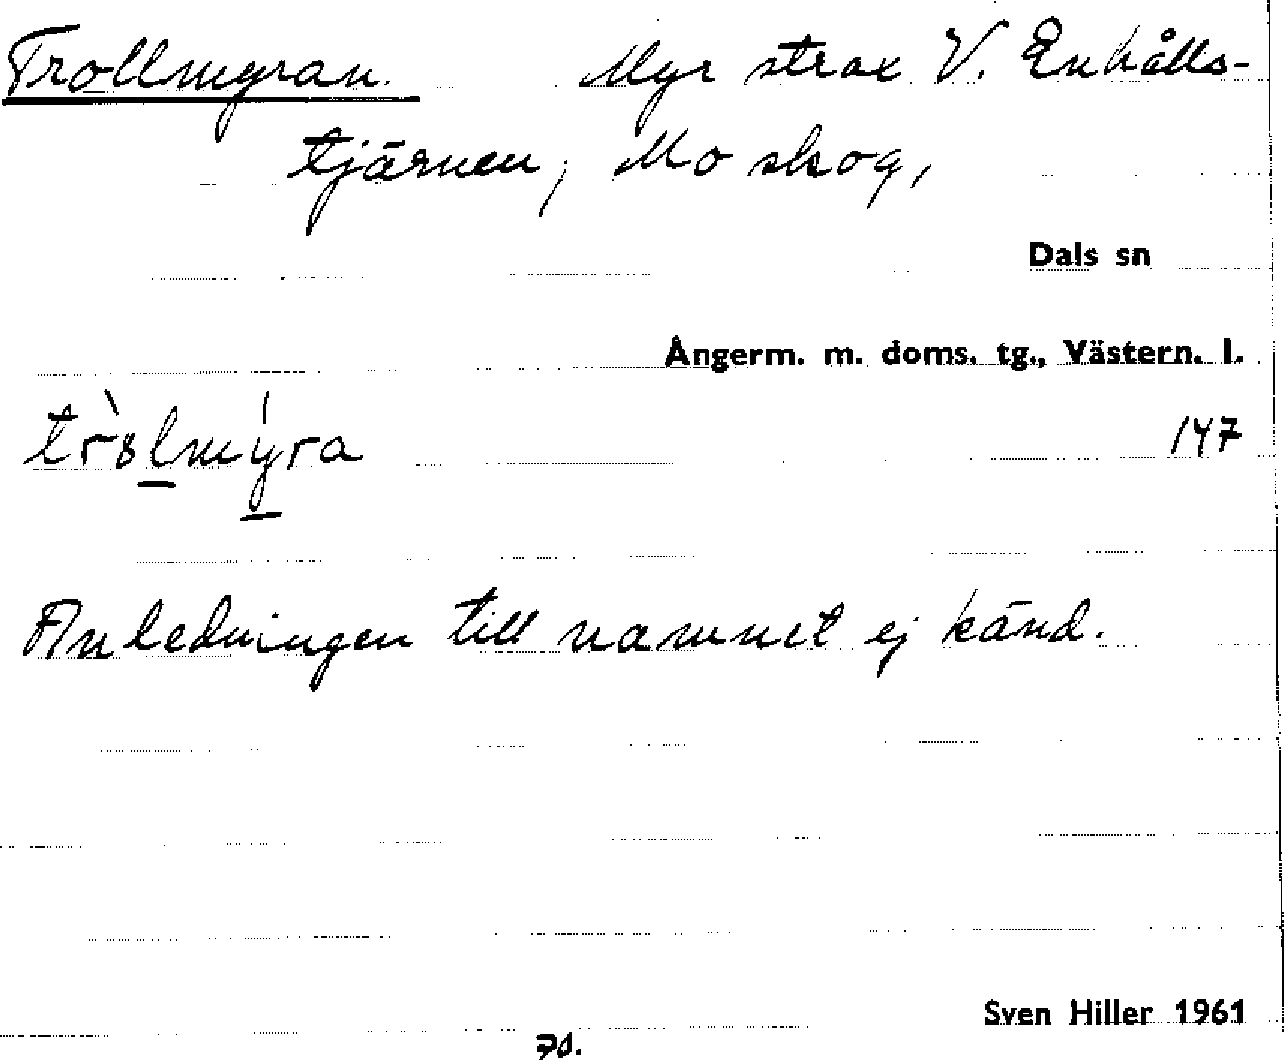 Trollmyran. Myr strax V. Enhålls-
tjärnen, Mo skog,
Dals sn
Ångerm. m. doms. tg., Västern. l.
147
Anledningen till namnet ej känd.
Sven Hiller 1961